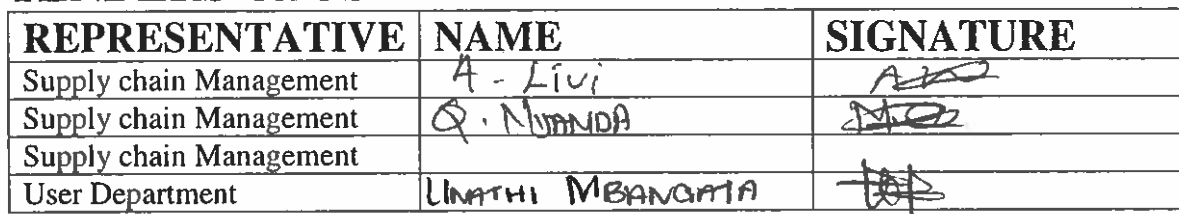 REPRESENTATIVE NAME SIGNATURE
Supply chain Management A - Livi
Supply chain Management Q.
Supply chain Management
User Department UNATHI MBANGATA